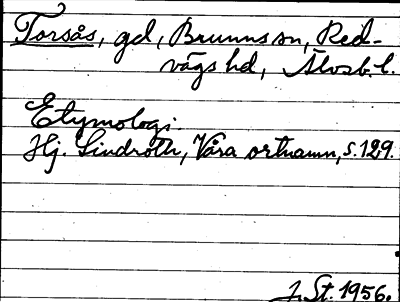 Torsås, gd, Brunns sn, Red-
vägs hd, Älvsb. l.
Etymologi.
Hj. Lindroth, Våra ortnamn, s. 129.
J. St. 1956.